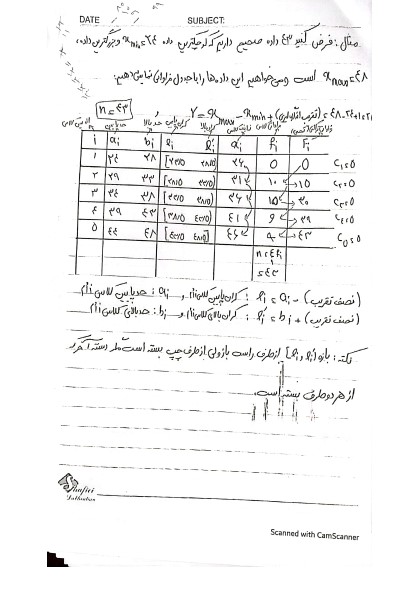 DATE
SUBJECT:
مثال: فرض کنید ۴۳ داده صحیح داریم که کوچکترین داده x min = ۲۴ و بزرگترین داده
x max = ۴۸ است و می‌خواهیم این داده‌ها را با جدول فراوانی نمایش دهیم:
n = ۴۳
i ai bi li l'i xi fi Fi
۱ ۲۴ ۲۸ [۲۳/۵ ۲۸/۵) ۲۶ ۵ ۵ C₁ = ۵
۲ ۲۹ ۳۳ [۲۸/۵ ۳۳/۵) ۳۱ ۱۰ ۱۵ C₂ = ۵
۳ ۳۴ ۳۸ [۳۳/۵ ۳۸/۵) ۳۶ ۱۵ ۳۰ C₃ = ۵
۴ ۳۹ ۴۳ [۳۸/۵ ۴۳/۵) ۴۱ ۹ ۳۹ C₄ = ۵
۵ ۴۴ ۴۸ [۴۳/۵ ۴۸/۵] ۴۶ ۴ ۴۳ C₅ = ۵
n = Σfi
= ۴۳
(نصف تقریب) - li = ai : کران پایین کلاس iام و ai : حد پایین کلاس iام
(نصف تقریب) + l'i = bi : کران بالای کلاس iام و bi : حد بالای کلاس iام
نکته: بازه [li , l'i) از طرف راست باز ولی از طرف چپ بسته است مگر دسته آخر که
از هر دو طرف بسته است.
Scanned with CamScanner